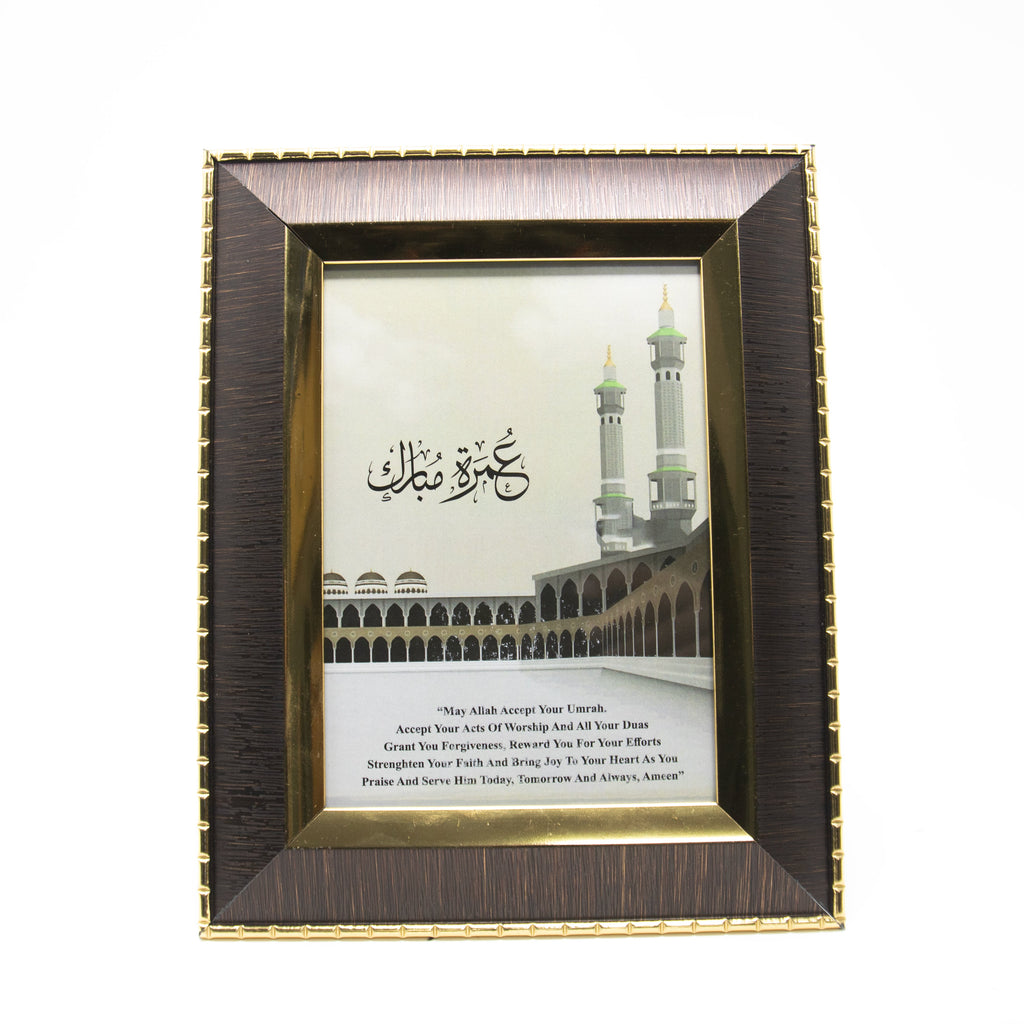 عُمرَة مُبارك
“May Allah Accept Your Umrah.
Accept Your Acts Of Worship And All Your Duas
Grant You Forgiveness, Reward You For Your Efforts
Strenghten Your Faith And Bring Joy To Your Heart As You
Praise And Serve Him Today, Tomorrow And Always, Ameen”